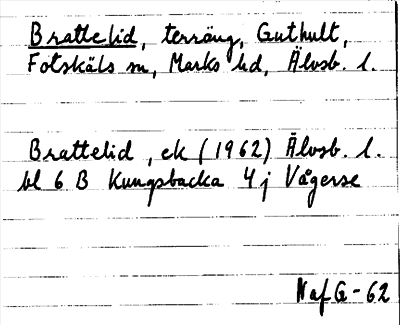 Brattelid, terräng, Guthult,
Fotskäls sn, Marks hd, Älvsb. l.
Brattelid, ek (1962) Älvsb. l.
bl 6 B Kungsbacka 4 j Vågerse
Naf G-62